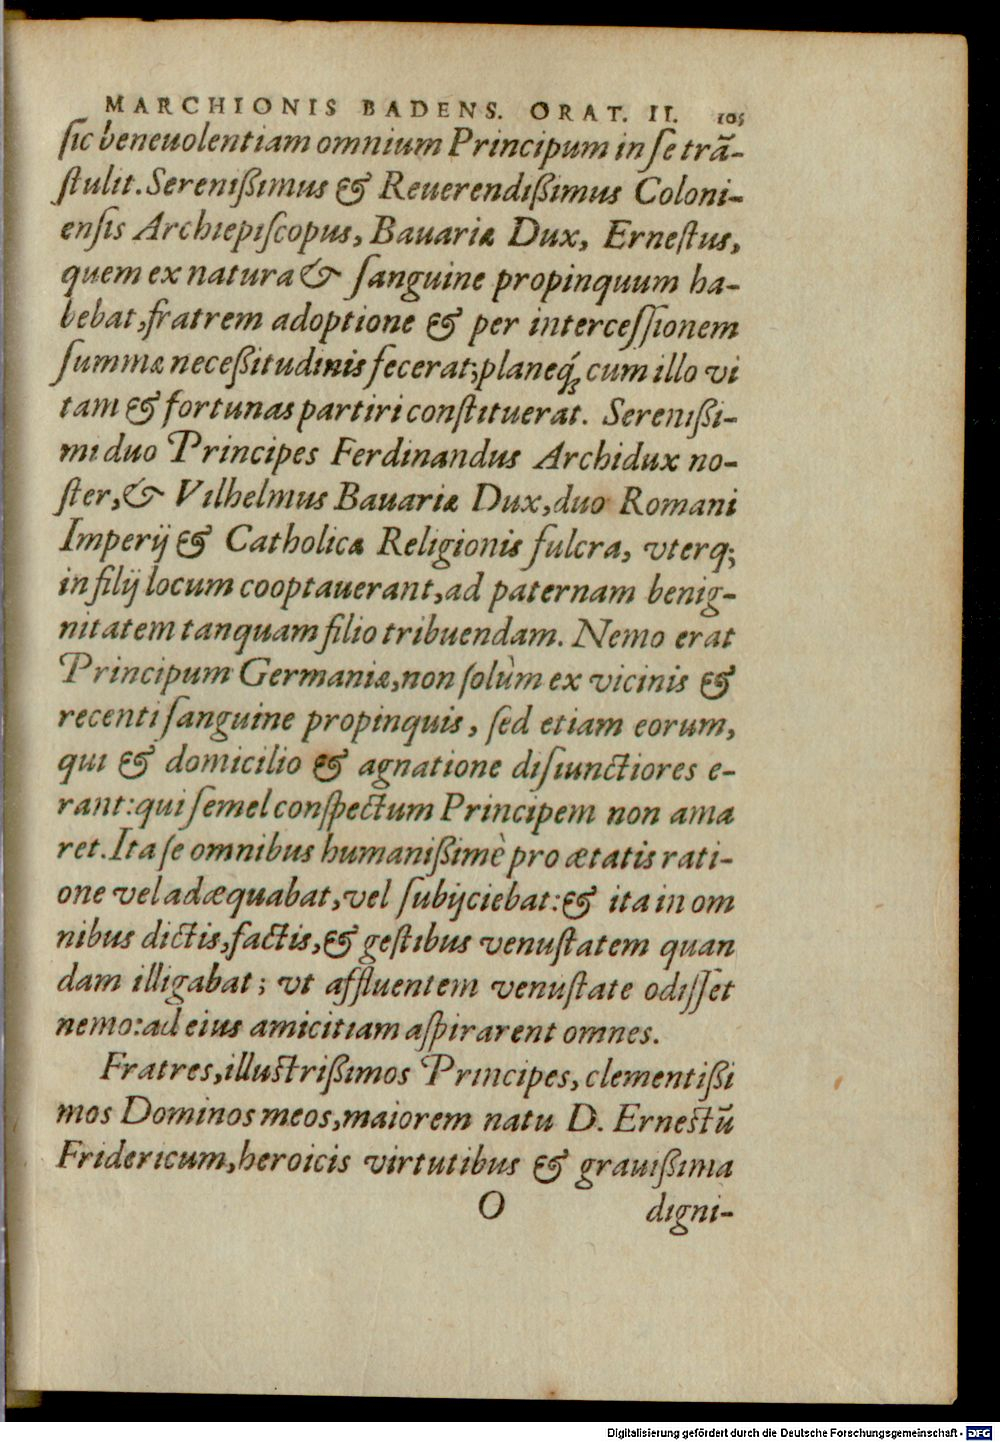 MARCHIONIS BADENS. ORAT. II. 105
ſic beneuolentiam omnium Principum in ſe trã-
ſtulit. Sereniſſimus & Reuerendiſſimus Coloni-
enſis Archiepiſcopus, Bauariæ Dux, Erneſtus,
quem ex natura & ſanguine propinquum ha-
bebat, fratrem adoptione & per interceſſionem
ſummæ neceſſitudinis fecerat; planeq́; cum illo vi
tam & fortunas partiri conſtituerat. Sereniſſi-
mi duo Principes Ferdinandus Archidux no-
ſter, & Vilhelmus Bauariæ Dux, duo Romani
Imperij & Catholicæ Religionis fulcra, vterq;
in filij locum cooptauerant, ad paternam benig-
nitatem tanquam filio tribuendam. Nemo erat
Principum Germaniæ, non ſolùm ex vicinis &
recenti ſanguine propinquis, ſed etiam eorum,
qui & domicilio & agnatione diſiunctiores e-
rant: qui ſemel conſpectum Principem non ama
ret. Ita ſe omnibus humaniſſimè pro ætatis rati-
one vel adæquabat, vel ſubijciebat: & ita in om
nibus dictis, factis, & geſtibus venuſtatem quan
dam illigabat; vt affluentem venuſtate odiſſet
nemo: ad eius amicitiam aſpirarent omnes.
Fratres, illuſtriſſimos Principes, clementiſſi
mos Dominos meos, maiorem natu D. Erneſtũ
Fridericum, heroicis virtutibus & grauiſſima
O digni-
Digitalisierung gefördert durch die Deutsche Forschungsgemeinschaft - DFG